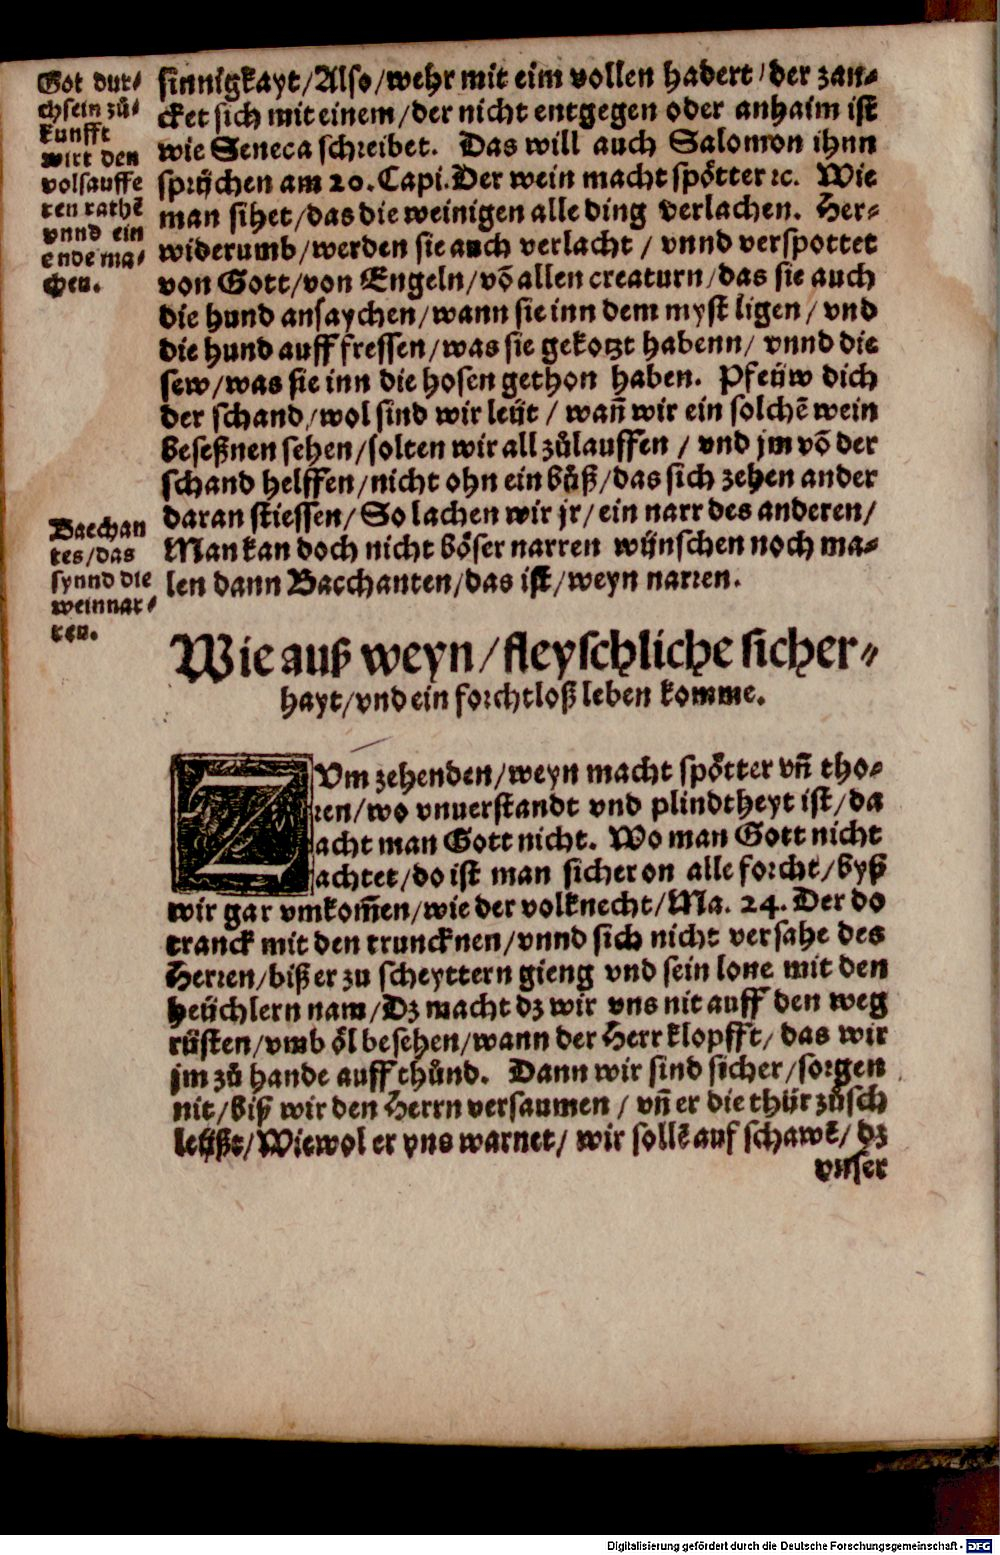 Got dur⸗
chsein zů⸗
kunfft
wirt den
volsauffe
ren rathē
vnnd ein
ende ma⸗
chen.
sinnigkayt/Also/wehr mit eim vollen hadert/der zan⸗
cket sich mit einem/der nicht entgegen oder anhaim ist
wie Seneca schreibet. Das will auch Salomon ihnn
sprüchen am 20. Capi. Der wein macht spötter ꝛc. Wie
man sihet/das die weinigen alle ding verlachen. Her⸗
widerumb/werden sie auch verlacht / vnnd verspottet
von Gott/von Engeln/võ allen creaturn/das sie auch
die hund ansaychen/wann sie inn dem myst ligen/ vnd
die hund auff fressen/was sie gekotzt habenn/ vnnd die
sew/was sie inn die hosen gethon haben. Pfeüw dich
der schand/wol sind wir leüt / wañ wir ein solchē wein
beseßnen sehen/solten wir all zůlauffen / vnd jm võ der
schand helffen/nicht ohn ein bůß/das sich zehen ander
daran stiessen/ So lachen wir jr/ ein narr des anderen/
Man kan doch nicht böser narren wünschen noch ma⸗
len dann Bacchanten/das ist/weyn narren.
Bacchan
tes/das
synnd die
weinnar⸗
ren.
Wie auß weyn/fleyschliche sicher⸗
hayt/vnd ein forchtloß leben komme.
ZVm zehenden/weyn macht spötter vñ tho⸗
ren/wo vnuerstandt vnd plindtheyt ist/da
acht man Gott nicht. Wo man Gott nicht
achtet/do ist man sicher on alle forcht/byß
wir gar vmkom̃en/wie der volknecht/Ma. 24. Der do
tranck mit den truncknen/vnnd sich nicht versahe des
Herren/biß er zu scheyttern gieng vnd sein lone mit den
heüchlern nam/Dz macht dz wir vns nit auff den weg
rüsten/vmb öl besehen/wann der Herr klopfft/ das wir
jm zů hande auff thůnd. Dann wir sind sicher/sorgen
nit/biß wir den Herrn versaumen / vñ er die thür zůsch
leüßt/Wiewol er vns warnet/ wir sollē auf schawē/ dz
vnser
Digitalisierung gefördert durch die Deutsche Forschungsgemeinschaft - DFG